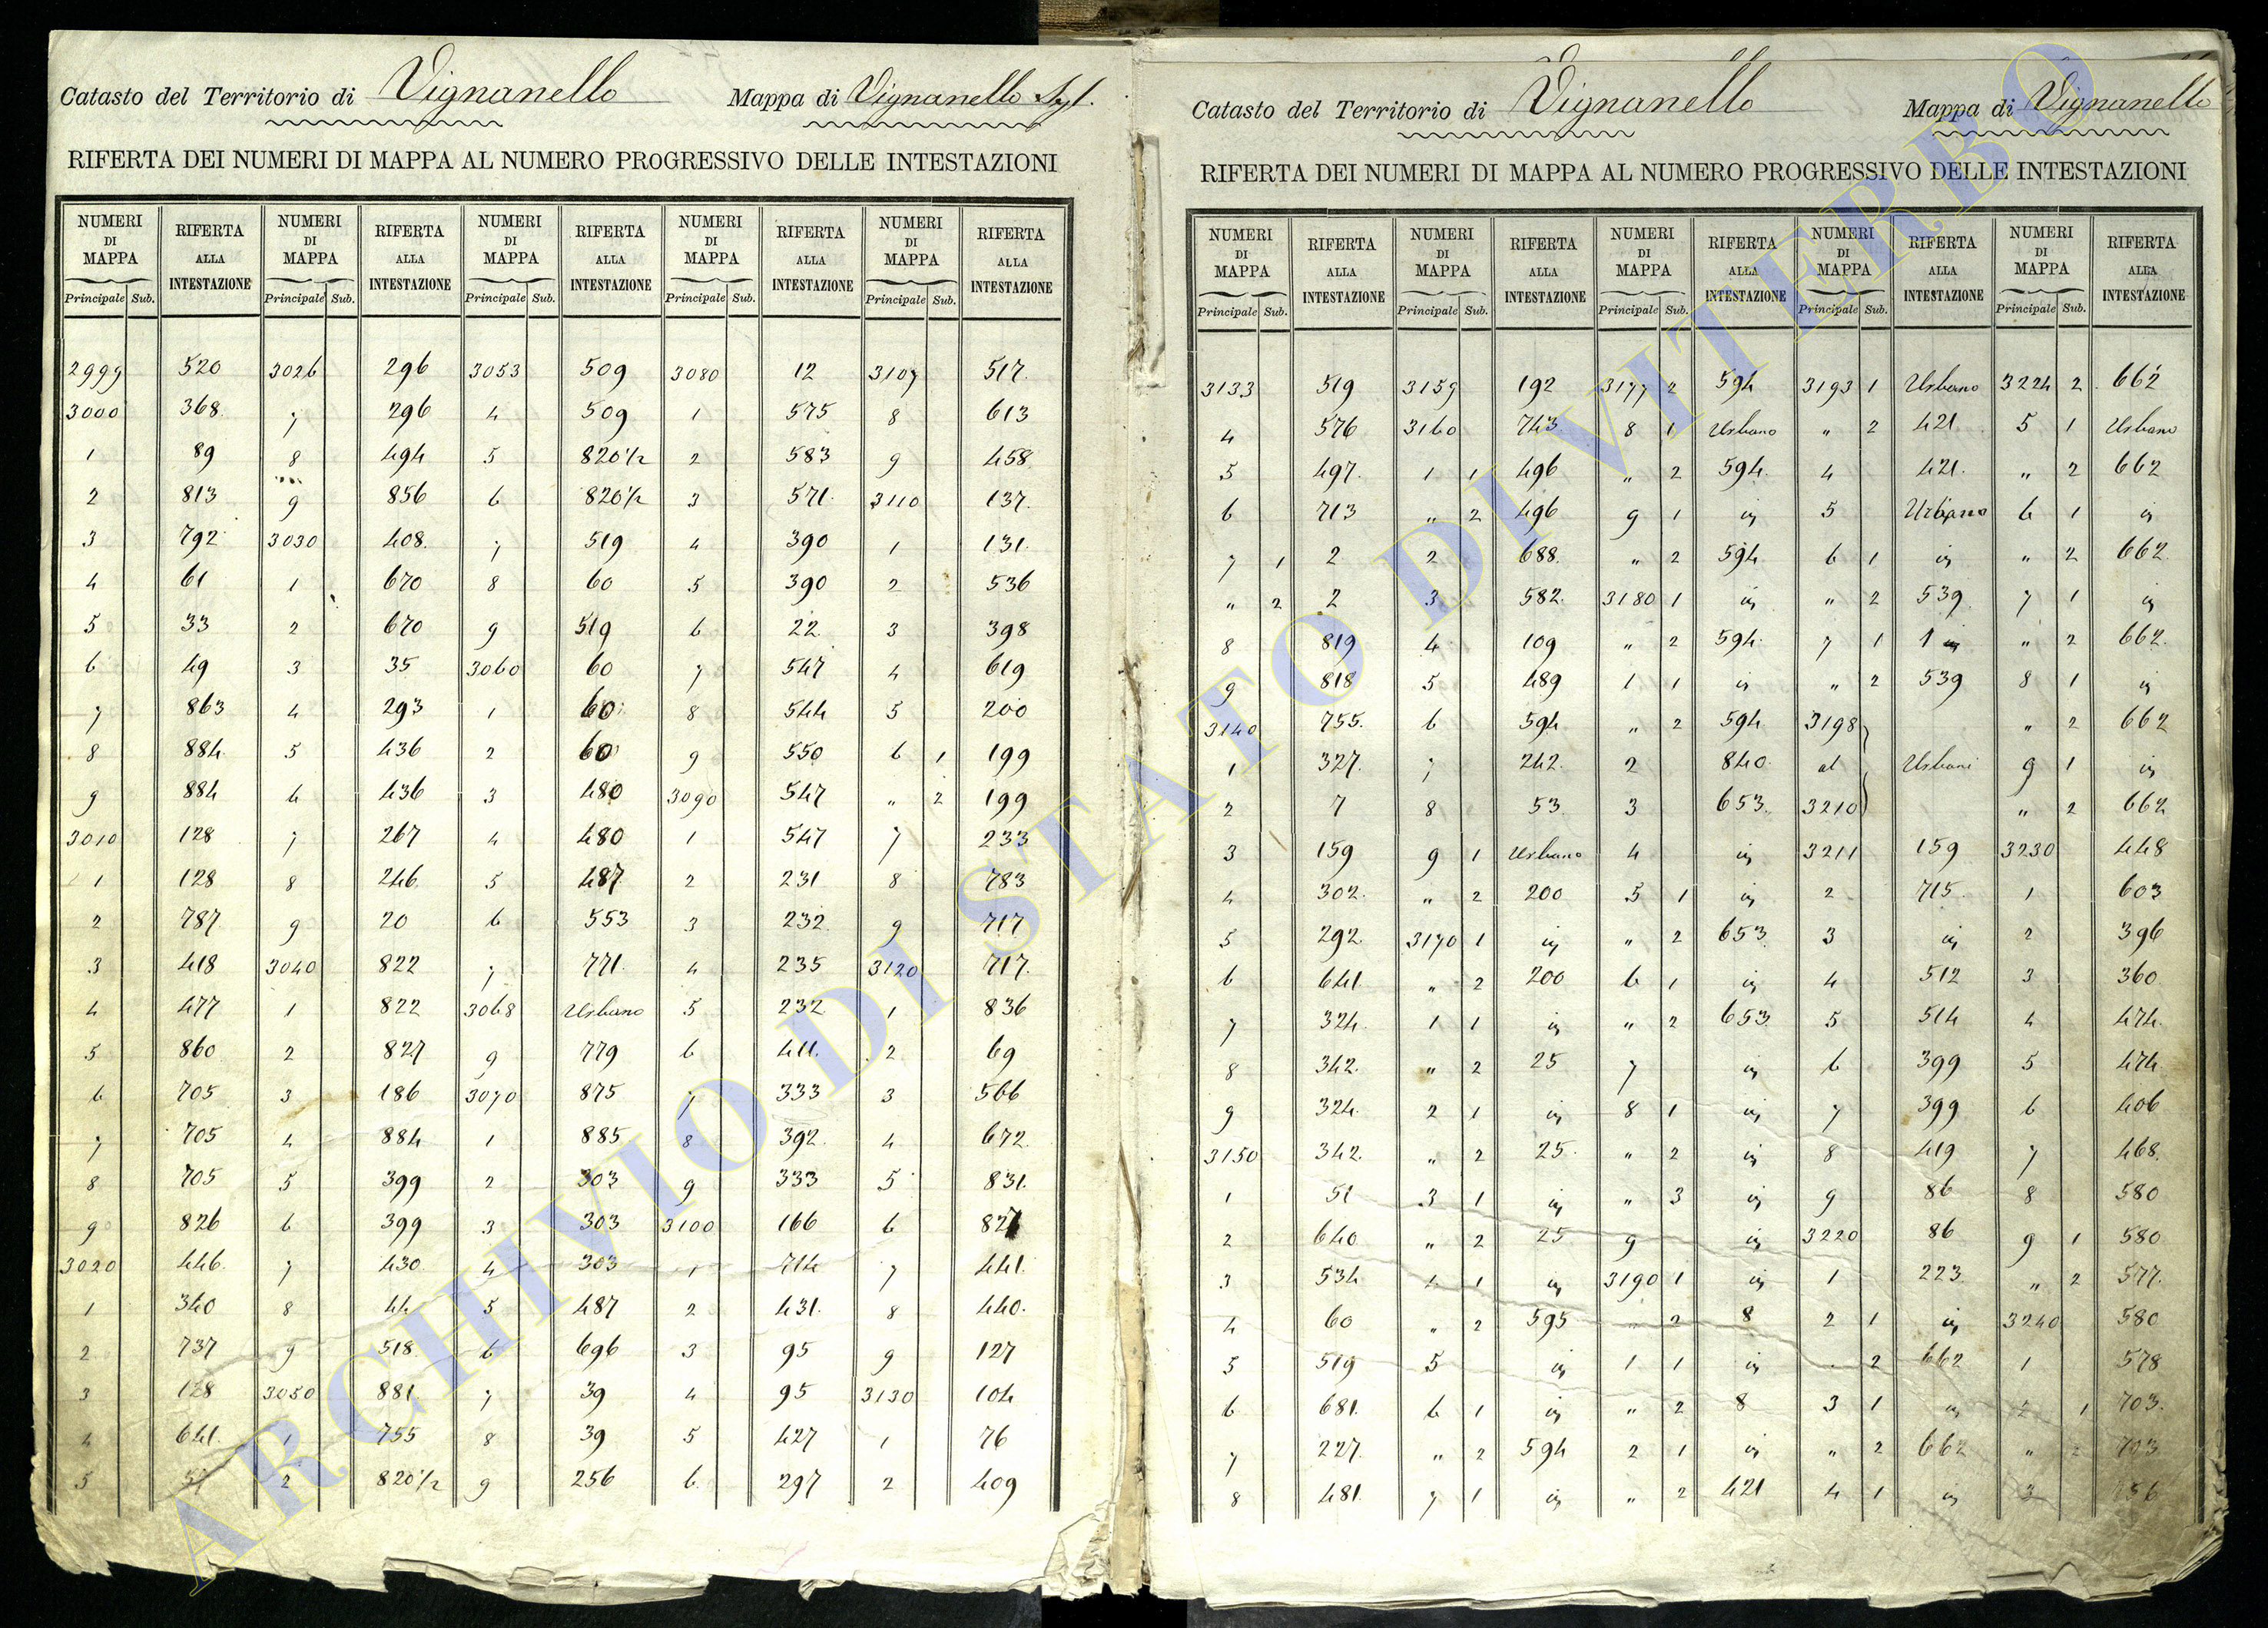 Catasto del Territorio di Vignanello Mappa di Vignanello
RIFERTA DEI NUMERI DI MAPPA AL NUMERO PROGRESSIVO DELLE INTESTAZIONI
NUMERI DI MAPPA RIFERTA ALLA INTESTAZIONE NUMERI DI MAPPA RIFERTA ALLA INTESTAZIONE NUMERI DI MAPPA RIFERTA ALLA INTESTAZIONE NUMERI DI MAPPA RIFERTA ALLA INTESTAZIONE NUMERI DI MAPPA RIFERTA ALLA INTESTAZIONE
Principale Sub. Principale Sub. Principale Sub. Principale Sub. Principale Sub.
2999 520 3026 296 3053 509 3080 12 3107 517
3000 368 7 296 4 509 1 575 8 613
1 89 8 494 5 820½ 2 583 9 458
2 813 9 856 6 820½ 3 571 3110 137
3 792 3030 408 7 519 4 390 1 131
4 61 1 670 8 60 5 390 2 536
5 33 2 670 9 519 6 22 3 398
6 49 3 35 3060 60 7 547 4 619
7 863 4 293 1 60 8 544 5 200
8 884 5 436 2 60 9 550 6 1 199
9 884 6 436 3 480 3090 547 " 2 199
3010 128 7 267 4 480 1 547 7 233
1 128 8 246 5 487 2 231 8 783
2 787 9 20 6 553 3 232 9 717
3 418 3040 822 7 771 4 235 3120 717
4 477 1 822 3068 Urbano 5 232 1 836
5 860 2 827 9 779 6 411 2 69
6 705 3 186 3070 875 7 333 3 566
7 705 4 884 1 885 8 392 4 672
8 705 5 399 2 303 9 333 5 831
9 826 6 399 3 303 3100 166 6 827
3020 446 7 430 4 303 1 714 7 441
1 340 8 44 5 487 2 431 8 440
2 737 9 518 6 696 3 95 9 127
3 128 3050 881 7 39 4 95 3130 104
4 641 1 755 8 39 5 427 1 76
5 2 820½ 9 256 6 297 2 409
Catasto del Territorio di Vignanello Mappa di Vignanello
RIFERTA DEI NUMERI DI MAPPA AL NUMERO PROGRESSIVO DELLE INTESTAZIONI
NUMERI DI MAPPA RIFERTA ALLA INTESTAZIONE NUMERI DI MAPPA RIFERTA ALLA INTESTAZIONE NUMERI DI MAPPA RIFERTA ALLA INTESTAZIONE NUMERI DI MAPPA RIFERTA ALLA INTESTAZIONE NUMERI DI MAPPA RIFERTA ALLA INTESTAZIONE
Principale Sub. Principale Sub. Principale Sub. Principale Sub. Principale Sub.
3133 519 3159 192 3177 2 594 3193 1 Urbano 3224 2 662
4 576 3160 743 8 1 Urbano " 2 421 5 1 Urbano
5 497 1 1 496 " 2 594 4 421 " 2 662
6 713 " 2 496 9 1 in 5 Urbano 6 1 in
7 1 2 2 688 " 2 594 6 1 in " 2 662
" 2 2 3 582 3180 1 in " 2 539 7 1 in
8 819 4 109 " 2 594 7 1 in " 2 662
9 818 5 489 1 1 in " 2 539 8 1 in
3140 755 6 594 " 2 594 3198 " 2 662
1 327 7 242 2 840 al Urbani 9 1 in
2 7 8 53 3 653 3210 " 2 662
3 159 9 1 Urbano 4 in 3211 159 3230 448
4 302 " 2 200 5 1 in 2 715 1 603
5 292 3170 1 in " 2 653 3 in 2 396
6 641 " 2 200 6 1 in 4 512 3 360
7 324 1 1 in " 2 653 5 514 4 474
8 342 " 2 25 7 in 6 399 5 474
9 324 2 1 in 8 1 in 7 399 6 406
3150 342 " 2 25 " 2 in 8 419 7 468
1 51 3 1 in " 3 in 9 86 8 580
2 640 " 2 25 9 in 3220 86 9 1 580
3 534 4 1 in 3190 1 in 1 223 " 2 577
4 60 " 2 595 " 2 8 2 1 in 3240 580
5 519 5 in 1 1 in " 2 662 1 578
6 681 6 1 in " 2 8 3 1 in 2 1 703
7 227 " 2 594 2 1 in " 2 662 " 2 703
8 481 7 1 in " 2 421 4 1 in 3
ARCHIVIO DI STATO DI VITERBO